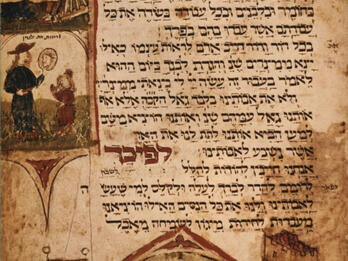 חומר ובלבנים ובכל עבודה בשדה את כל
עבודתם אשר עבדו בהם בפרך
בכל דור ודור חייב אדם לראות עצמו כאילו
יצא ממצרים והגדת לבנך ביום ההוא
לאמר בעבור זה עשה לי בצאתי ממצרים
לא את אבותינו בלבד גאל הקבה אלא אף
אותנו גאל עמהם ואותנו הוציא משם
למען הביא אותנו לתת לנו את הארץ
אשר נשבע לאבותינו
לפיכך
אנחנו חייבין להודות להלל
לשבח
לפאר
לרומם להדר לברך לעלה ולקלס למי שעשה
לנו ולאבותינו את כל הנסים האילו הוציאנו
מעבדות לחירות מיגון לשמחה מאבל